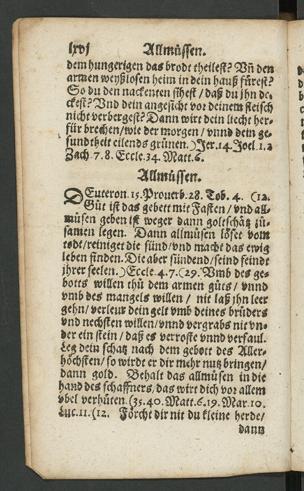 lxvj Allmüssen.
dem hungerigen das brodt theilest? Vñ den
armen weyßlosen heim in dein hauß fürest?
So du den nackenten sihest / daß du jhn de-
ckest? Vnd dein angesicht vor deinem fleisch
nicht verbergest? Dann wirt dein liecht her-
für brechen / wie der morgen / vnnd dein ge-
sundtheit eilends grünen.) Jer. 14. Joel. 1. 2
Zach. 7. 8. Eccle. 34. Matt. 6.
Allmüssen.
DEuteron. 15. Prouerb. 28. Tob. 4. (12.
Güt ist das gebett mit Fasten / vnd all-
müsen geben ist weger dann goltschätz zü-
samen legen. Dann allmüsen löset vom
todt / reiniget die sünd / vnd macht das ewig
leben finden. Die aber sündend / seind feinde
jhrer seelen.) Eccle. 4. 7. (29. Vmb des ge-
botts willen thü dem armen güts / vnnd
vmb des mangels willen / nit laß jhn leer
gehn / verleur dein gelt vmb deines brüders
vnd nechsten willen / vnnd vergrabs nit vn-
der ein stein / daß es verroste vnnd verfaul.
Leg dein schatz nach dem gebott des Aller-
höchsten / so wirdt er dir mehr nutz bringen /
dann gold. Behalt das allmüsen in die
hand des schaffners, das wirt dich vor allem
vbel verhüten. (35. 40. Matt. 6. 19. Mar. 10.
Luc. 11. (12. Förcht dir nit du kleine herde /
dann